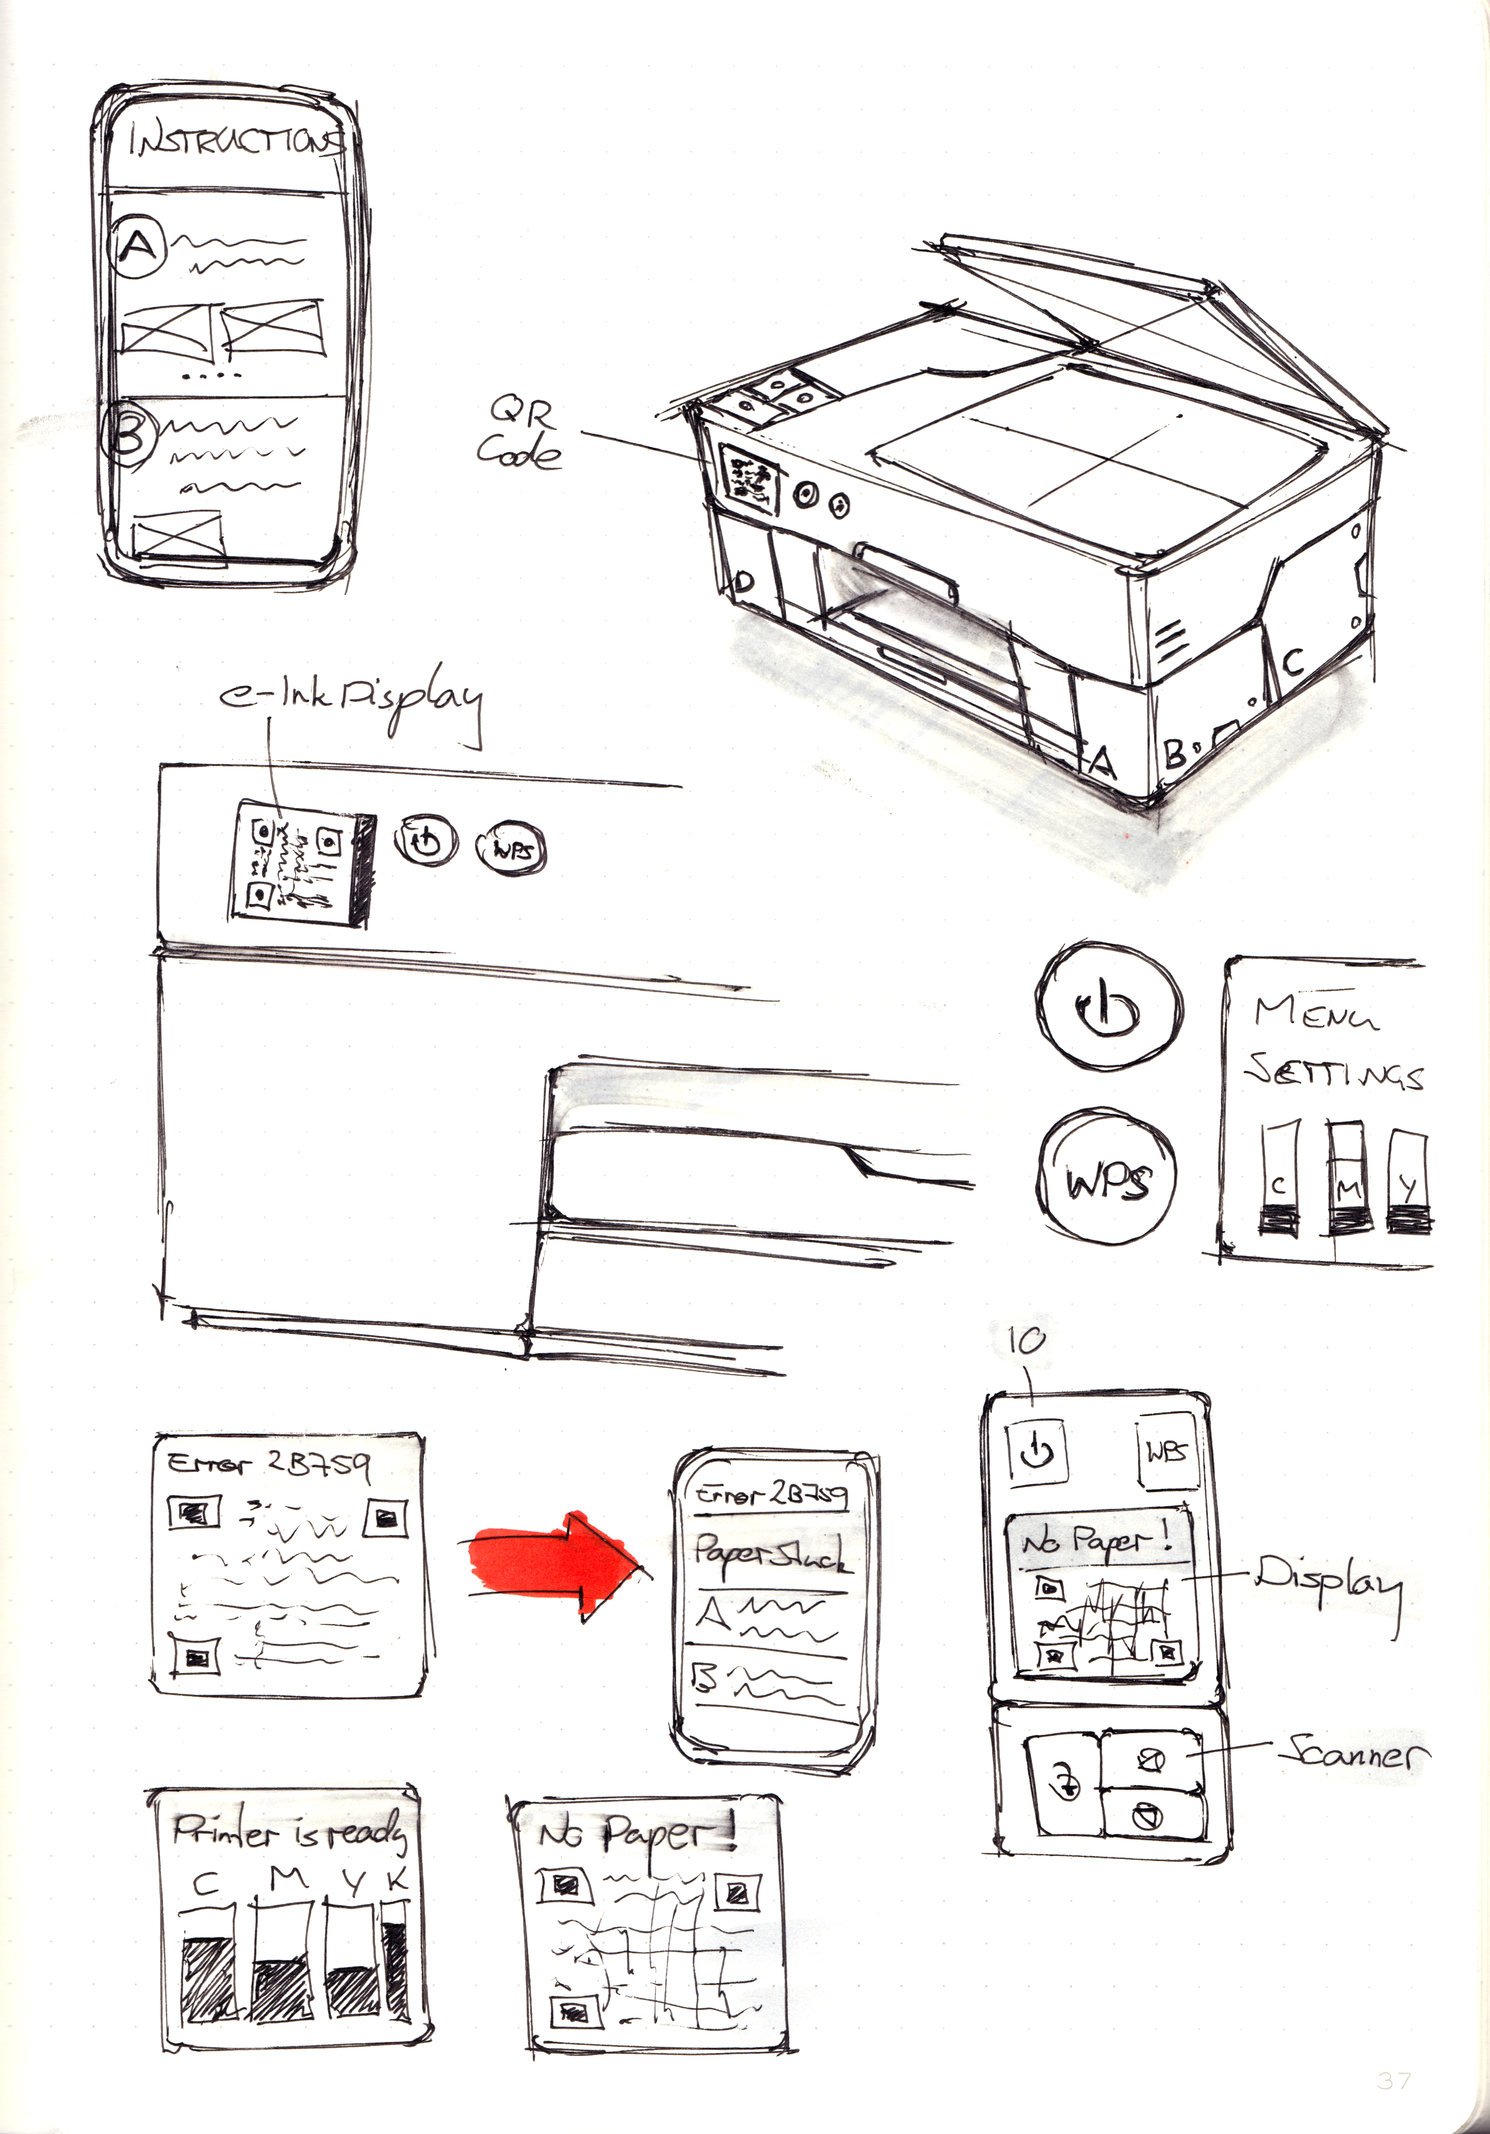 INSTRUCTIONS
A
B
QR
Code
D
C
A
B
e-Ink Display
WPS
MENU
SETTINGS
C M Y
WPS
10
WPS
No Paper!
Display
Scanner
Error 2B759
Error 2B759
Paper Stuck
A
B
Printer is ready
C M Y K
No Paper!
37